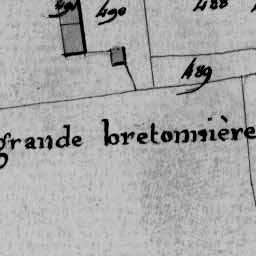 490
488
489
grande bretonnière